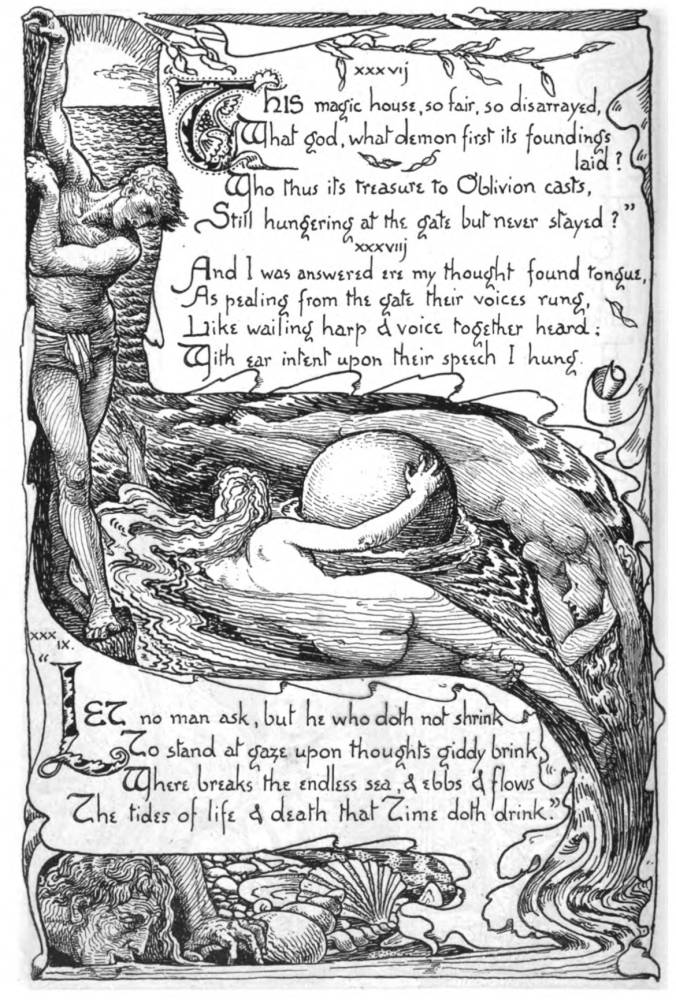 xxxvij
This magic house, so fair, so disarrayed,
What god, what demon first its foundings
laid?
Who thus its treasure to Oblivion casts,
Still hungering at the gate but never stayed?"
xxxviij
And I was answered ere my thought found tongue,
As pealing from the gate their voices rung,
Like wailing harp & voice together heard:
With ear intent upon their speech I hung.
xxx
ix.
"Let no man ask, but he who doth not shrink
To stand at gaze upon thoughts giddy brink
Where breaks the endless sea, & ebbs & flows
The tides of life & death that Time doth drink."